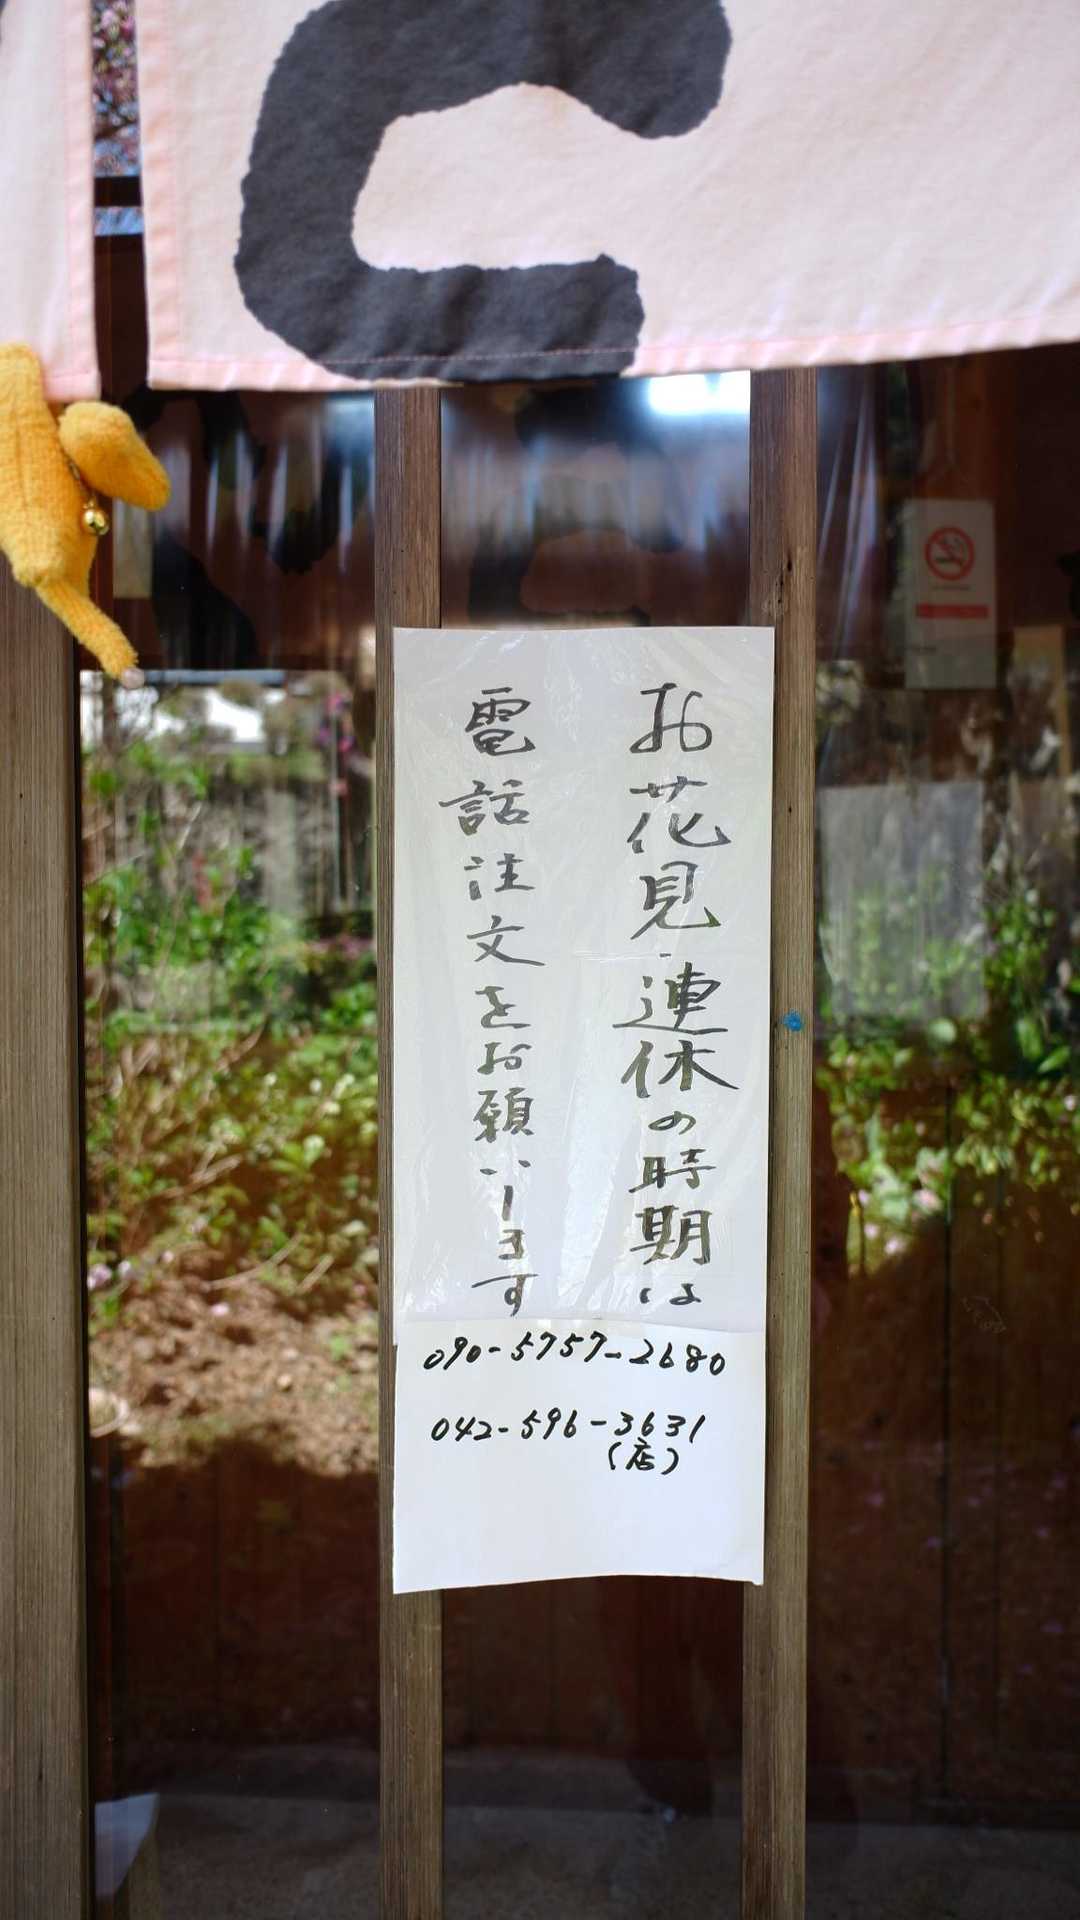 と
お花見・連休の時期は
電話注文をお願いします
090-5757-2680
042-596-3631
(店)